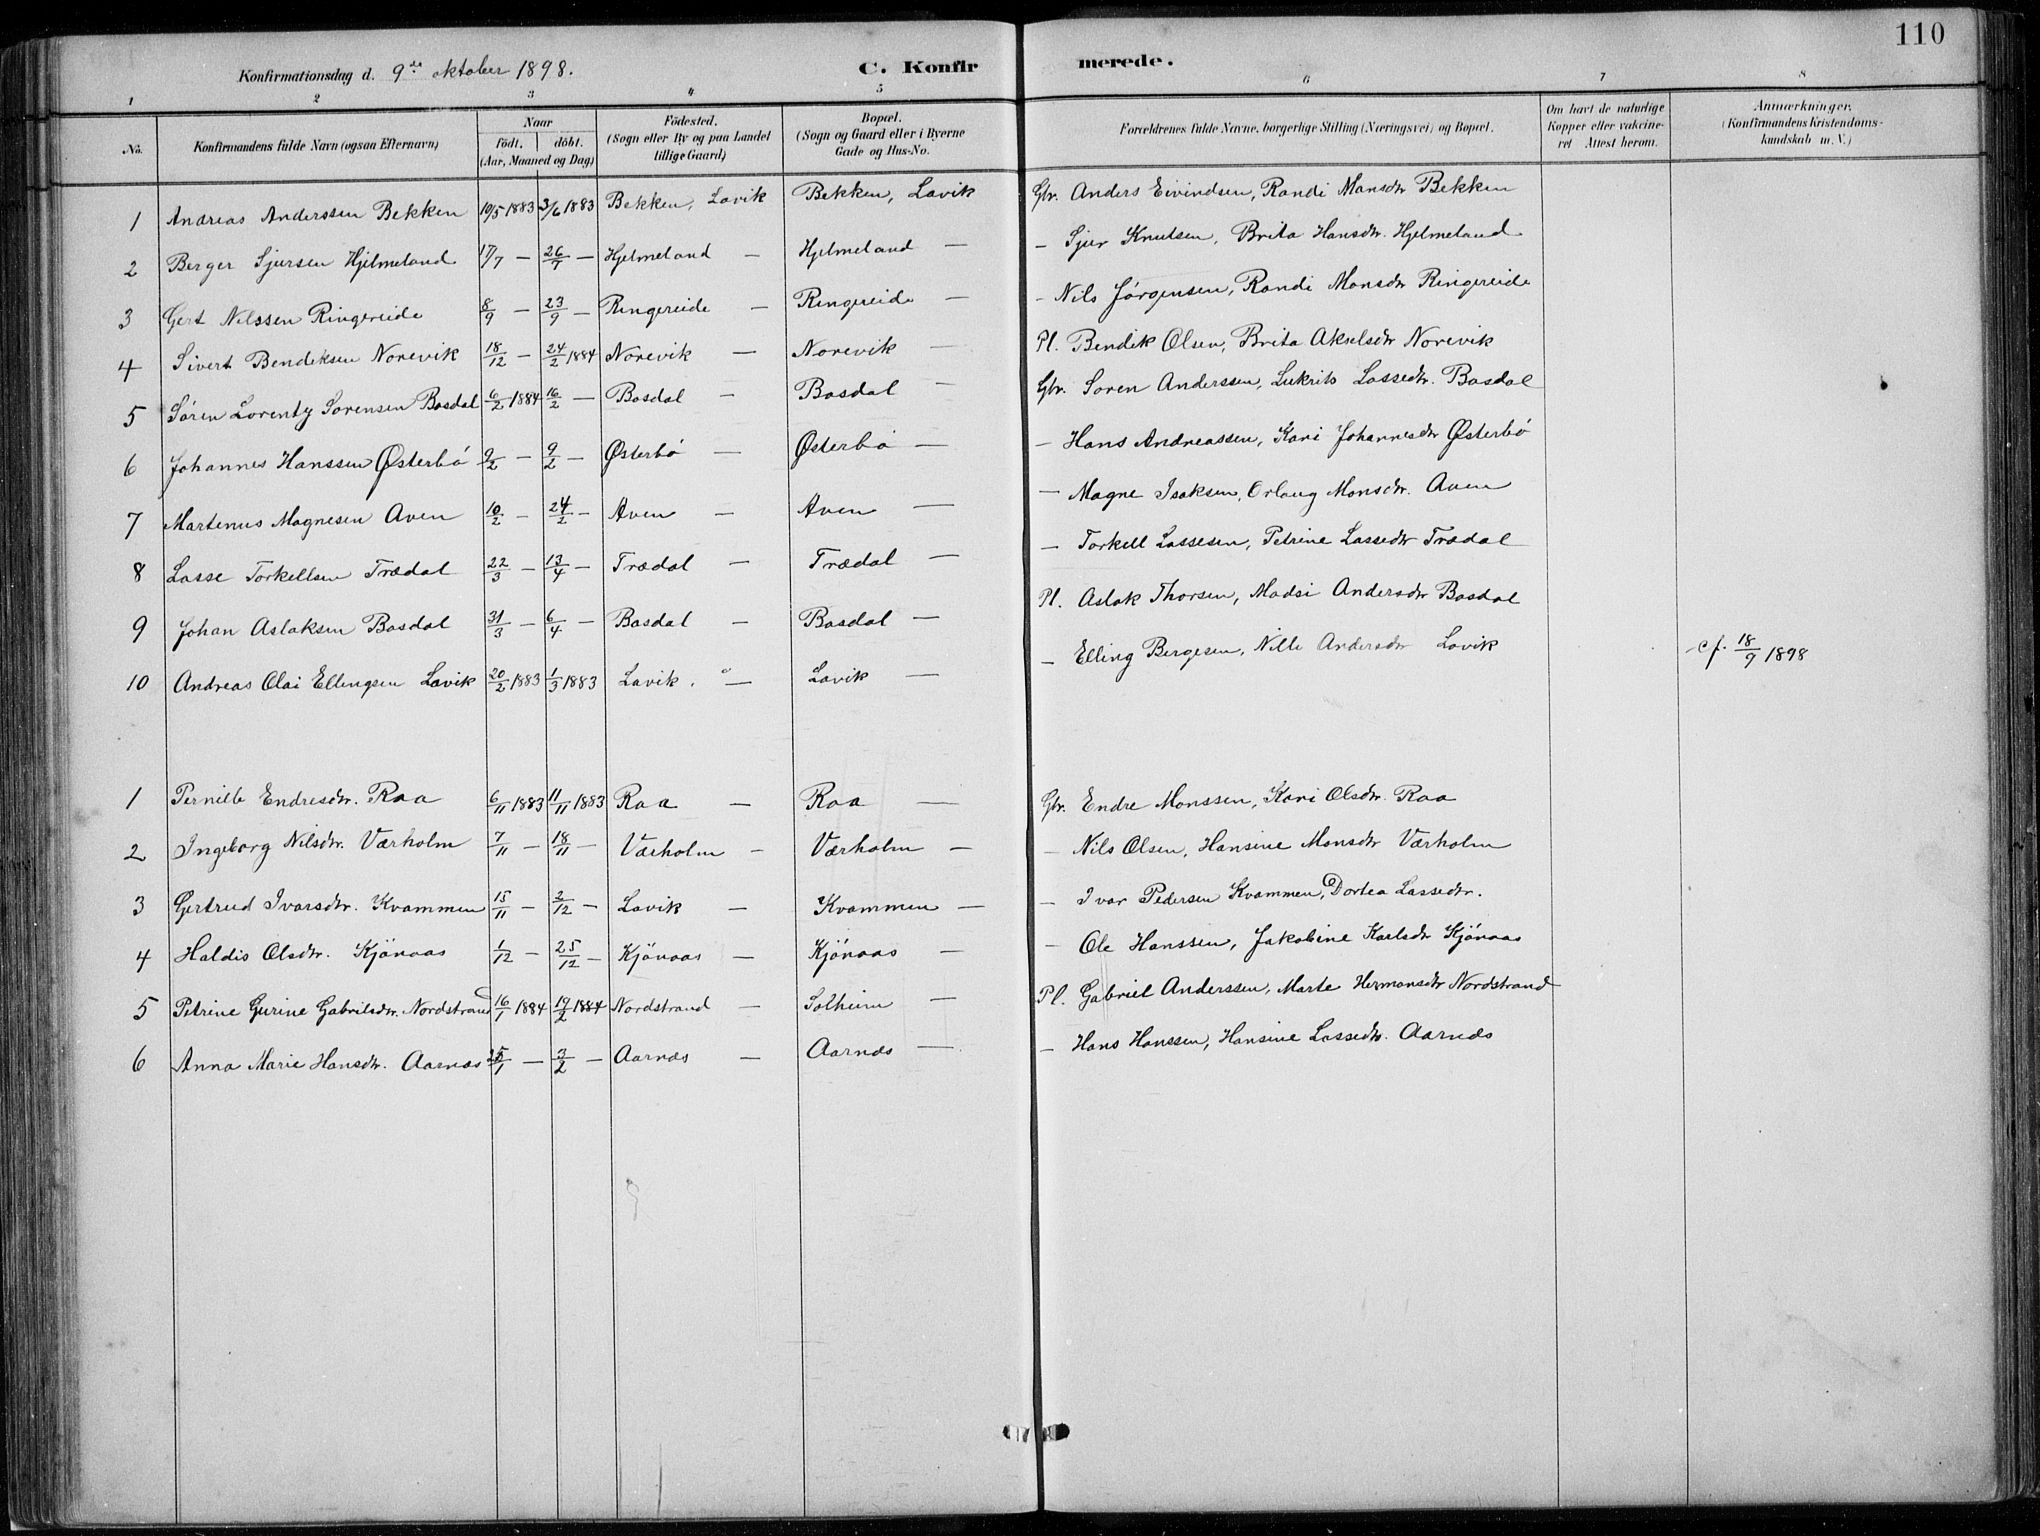 110
Konfirmationsdag d. 9de oktober 1898. C. Konfir merede.
1 2 3 4 5 6 7 8
No. Konfirmandens fulde Navn (ogsaa Efternavn) Naar födt. döbt. (Aar, Maaned og Dag) Födested. (Sogn eller By og paa Landet tillige Gaard) Bopæl. (Sogn og Gaard eller i Byerne Gade og Hus-No. Forældrenes fulde Navne, borgerlige Stilling (Næringsvei) og Bopæl. Om havt de naturlige Kopper eller vakcineret Attest herom. Anmærkninger. (Konfirmandens Kristendomskundskab m. V.)
1 Andreas Anderssen Bekken 10/5 1883 3/6 1883 Bekken, Lavik Bekken, Lavik Gbr. Anders Eivindsen, Randi Monsdtr Bekken
2 Berger Sjursen Hjelmeland 17/7 — 26/7 — Hjelmeland — Hjelmeland — — Sjur Knutsen, Brita Hansdtr. Hjelmeland
3 Gert Nilssen Ringereide 8/9 — 23/9 — Ringereide — Ringereide — — Nils Jörgensen, Randi Monsdtr Ringereide
4 Sivert Bendiksen Norevik 18/12 — 24/2 1884 Norevik — Norevik — Pl. Bendik Olsen, Brita Akselsdtr Norevik
5 Sören Lorentz Sorensen Basdal 6/2 1884 16/2 — Basdal — Basdal — Gbr. Soren Anderssen, Lukrits Lassedtr. Basdal
6 Johannes Hanssen Østerbö 9/2 — 9/2 — Østerbö — Østerbö — — Hans Andreassen, Kari Johannesdtr Østerbö
7 Martenus Magnesen Aven 10/2 — 24/2 — Aven — Aven — — Magne Isaksen, Orlaug Monsdtr. Aven
8 Lasse Torkellsen Trædal 22/3 — 13/4 — Trædal — Trædal — — Torkell Lassesen, Petrine Lassedtr Trædal
9 Johan Aslaksen Basdal 31/3 — 6/4 — Basdal — Basdal — Pl. Aslak Thorsen, Madsi Andersdtr Basdal
10 Andreas Olai Ellingsen Lavik 20/2 1883 1/3 1883 Lavik. — Lavik — — Elling Bergesen, Nille Andersdtr Lavik cf. 18/9 1898
1 Pernille Endresdtr. Raa 6/11 1883 11/11 1883 Raa — Raa — Gbr. Endre Monssen, Kari Olsdtr. Raa
2 Ingeborg Nilsdtr. Værholm 7/11 — 18/11 — Værholm — Værholm — — Nils Olsen, Hansine Monsdtr Værholm
3 Gertrud Ivarsdtr. Kvammen 15/11 — 2/12 — Lavik — Kvammen — — Ivar Pedersen Kvammen, Dortea Lassedtr.
4 Haldis Olsdtr. Kjönaas 1/12 — 25/12 — Kjönaas — Kjönaas — — Ole Hanssen, Jakobine Karlsdtr Kjönaas
5 Petrine Gurine Gabrilsdtr. Nordstrand 16/1 1884 19/2 1884 Nordstrand — Solheim — Pl. Gabriel Anderssen, Marte Hermansdtr Nordstrand
6 Anna Marie Hansdtr. Aarnæs — — Aarnæs — Aarnæs — — Hans Hanssen, Hansine Lassedtr. Aarnæs